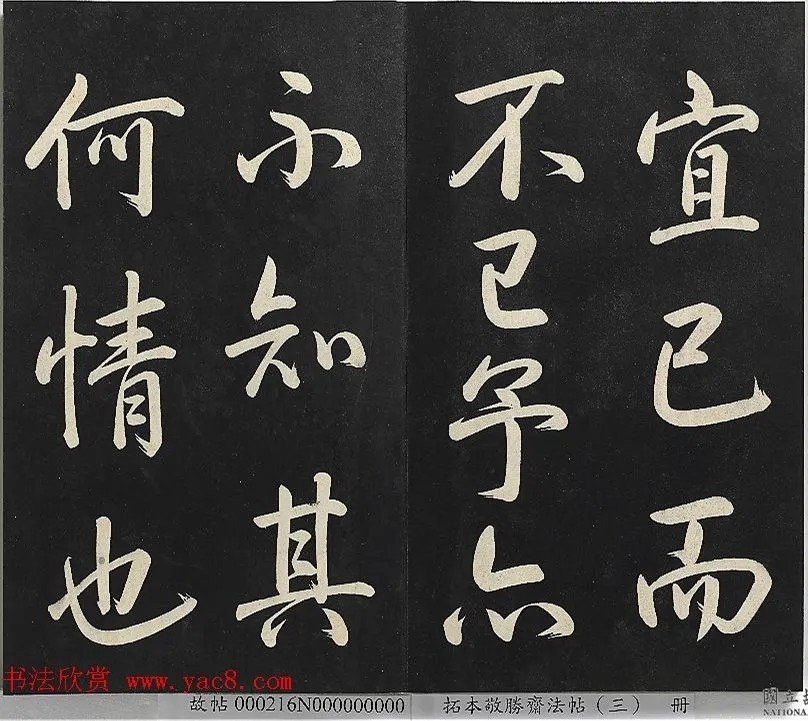 宜已而
不已予亦
不知其
何情也
书法欣赏 www.yac8.com
故帖000216N000000000
拓本敬勝齋法帖（三） 册
國立
NATIONA